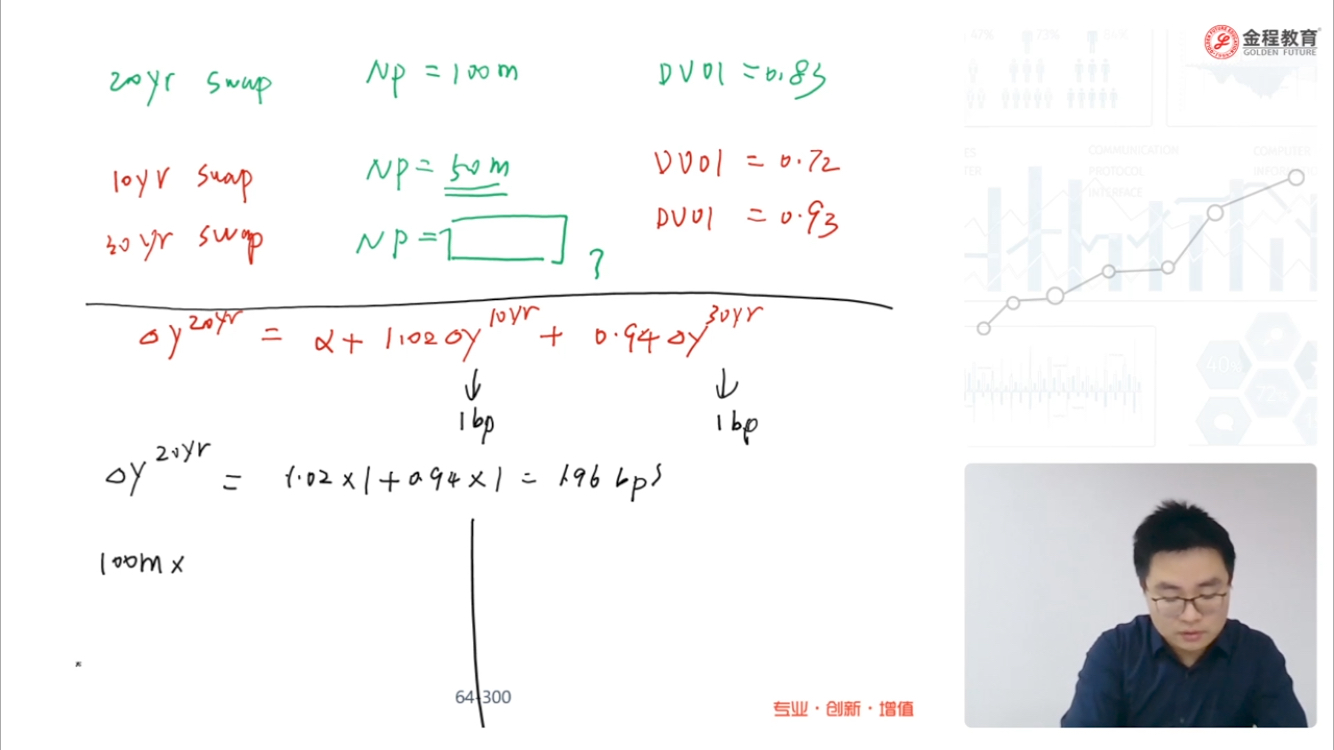 金程教育
GOLDEN FUTURE
20yr swap NP = 100m DV01 = 0.83
10yr swap NP = 50m DV01 = 0.72
30yr swap NP = ? DV01 = 0.93
Δy^20yr = α + 1.02Δy^10yr + 0.94Δy^30yr
↓ ↓
1bp 1bp
Δy^20yr = 1.02×1+0.94×1 = 1.96 bps
100m ×
64-300
专业·创新·增值
COMMUNICATION
PROTOCOL
INTERFACE